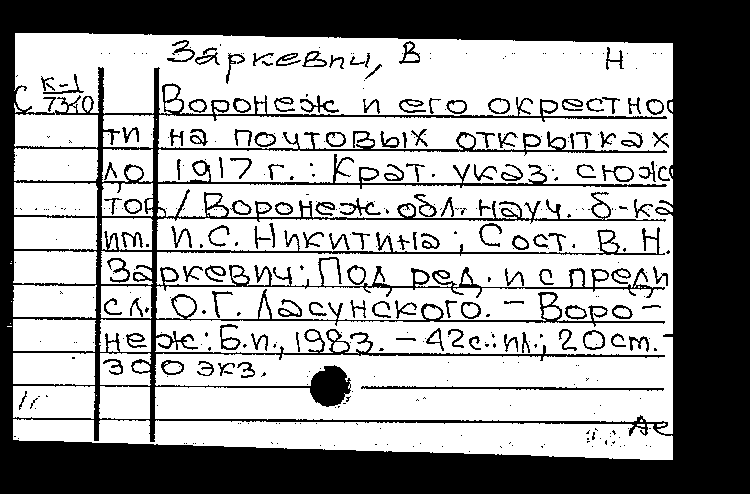 Заркевич, В Н
С К-1
7340
Воронеж и его окрестнос
ти на почтовых открытках
до 1917 г.: Крат. указ. сюже
тов / Воронеж. обл. науч. б-ка
им. И.С. Никитина; Сост. В. Н.
Заркевич; Под ред. и с преди
сл. О.Г. Ласунского. – Воро–
неж: Б.и., 1983. – 42с.: ил.; 20см. –
300 экз.
Ае